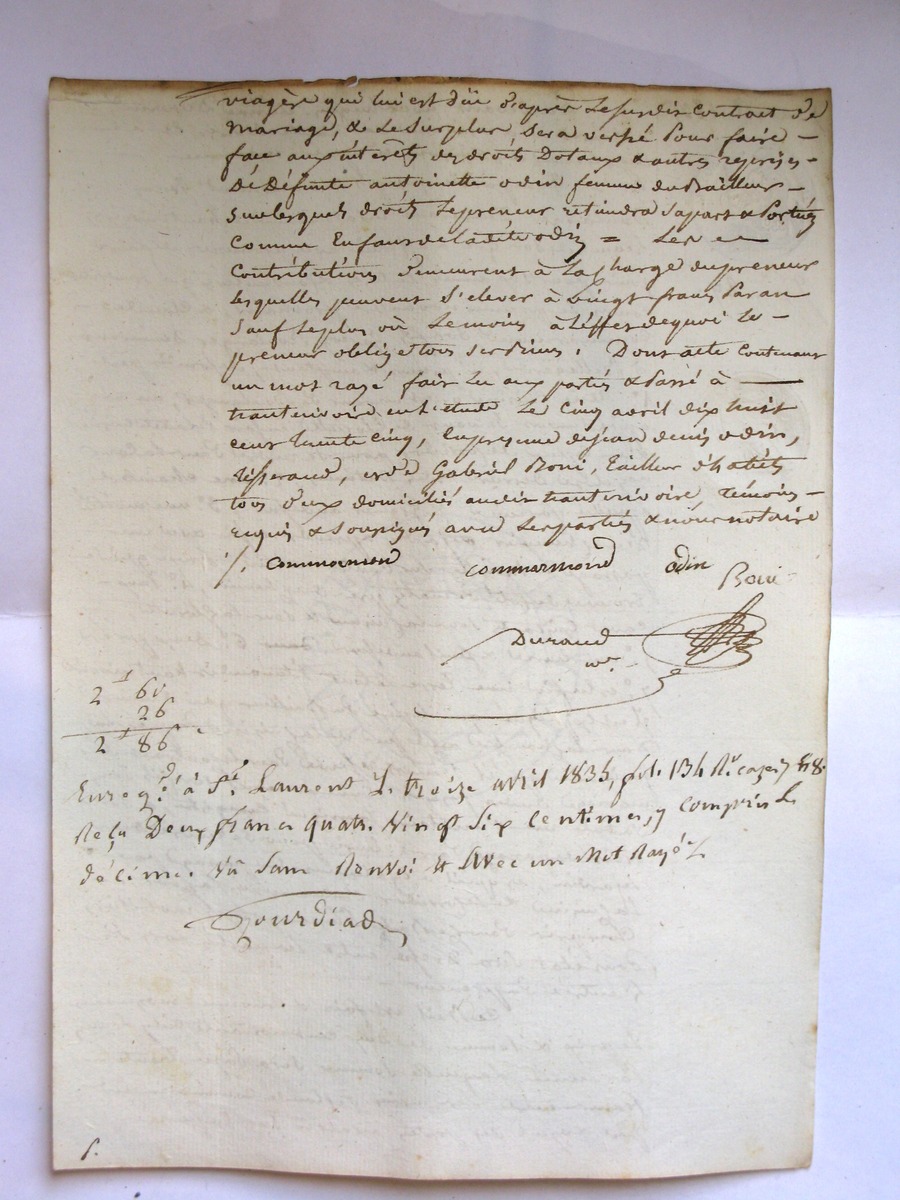 viagère qui lui est düe d'après le susdit contrat de
mariage, & le surplus sera versé pour faire –
face aux intérêts des droits dotaux & autres reprises –
de défunte antoinette odin femme du Bailleur –
sur lesquels droits le preneur retiendra sa part & portion
comme enfant de la dite odin = Les
contributions demeurent à la charge du preneur
lesquelles peuvent s'elever à vingt francs par an
sauf le plus où le moins à l'effet de quoi le –
preneur oblige tous ses biens. Dont acte contenant
un mot rayé fait lu aux parties & passé à —
hauterivoire en l'étude le cinq avril dix huit
cent trente cinq, en presence de jean denis odin,
tisserand, et de Gabriel Boni, tailleur d'habits
tous deux domiciliés audit hauterivoire, témoins –
requis & soussignés avec les parties & nous notaire
/. Commarmond commarmond odin
Durand
nre.
2 f 60
26
2 f 86
Enreg.é à St. Laurent le treize avril 1835, fol. 134 Ro. cazes 7 & 8.
Reçu Deux francs quatre Vingt Six centimes, y compris le
décime. Vu sans Renvoi et avec un Mot Rayé